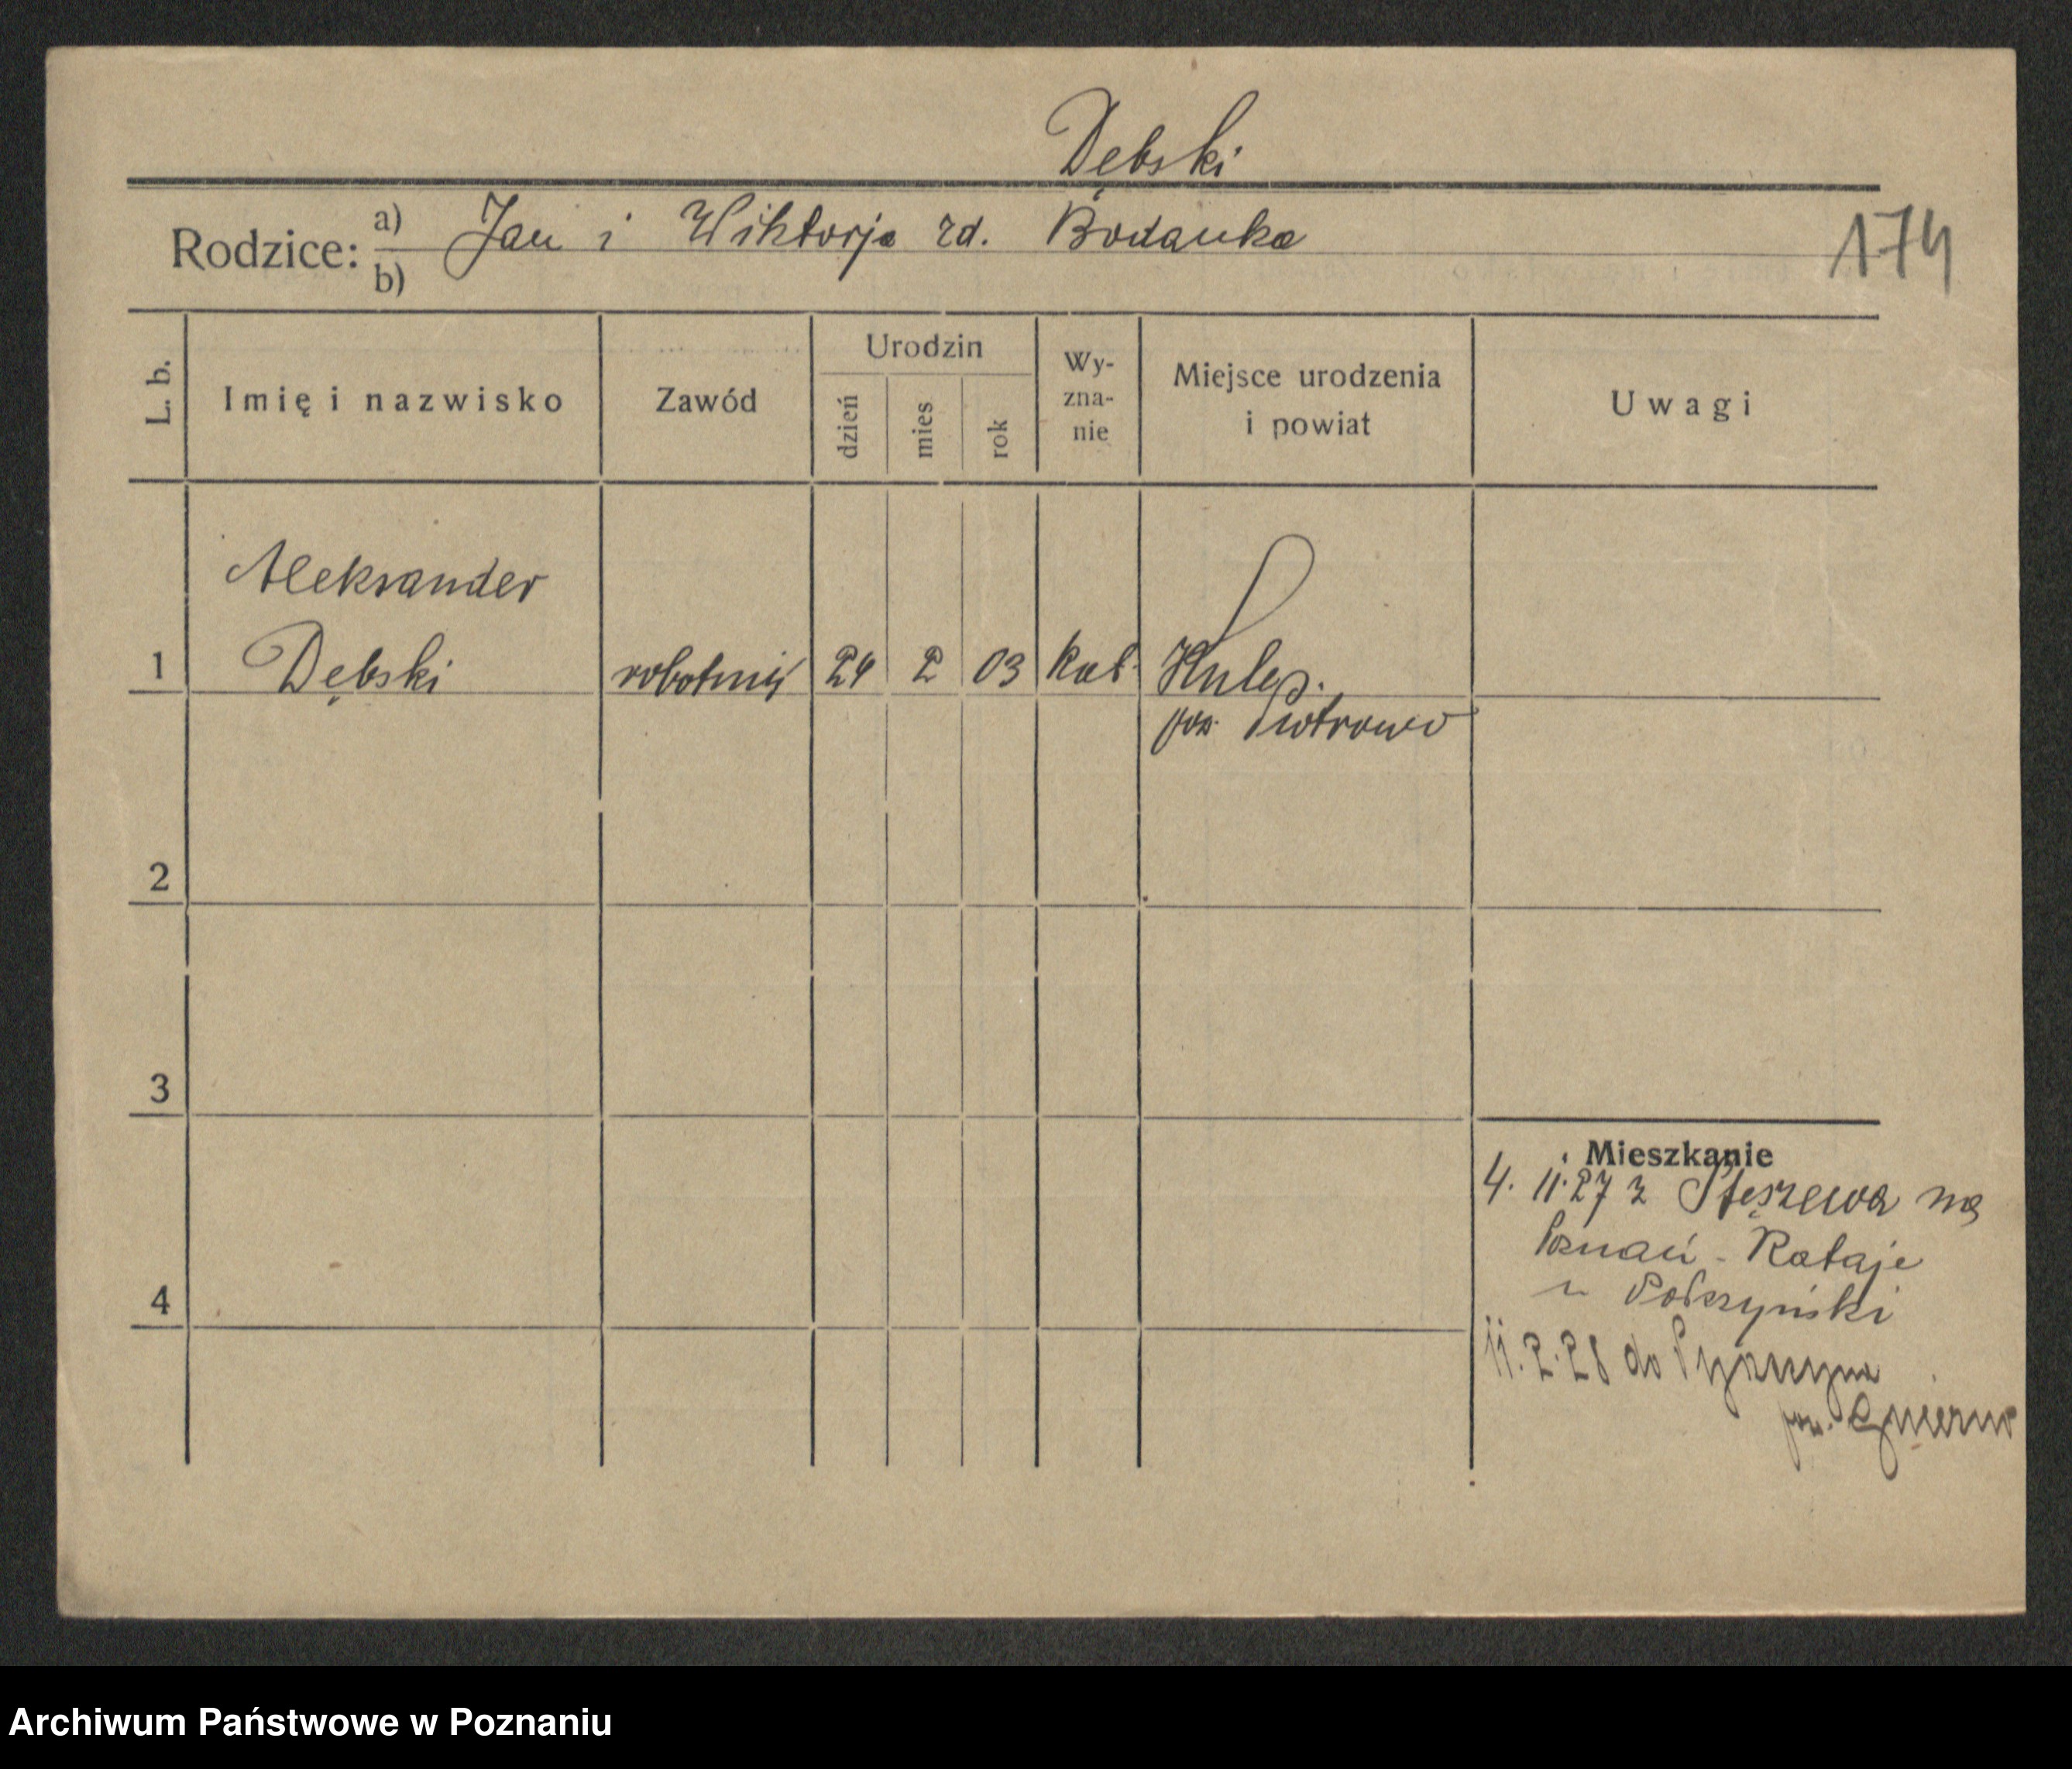 Dębski
Rodzice: a) Jan i Wiktorja zd. Bodanka
b)
174
L. b. Imię i nazwisko Zawód Urodzin dzień mies rok Wy-zna-nie Miejsce urodzenia i powiat Uwagi
Aleksander
1 Dębski robotnik 24 2 03 kat.
pow.
2
3
Mieszkanie
4. 11. 27 z Stęszewa na
Poznań - Rataje
4
11. 2. 28 do
pow.
Archiwum Państwowe w Poznaniu